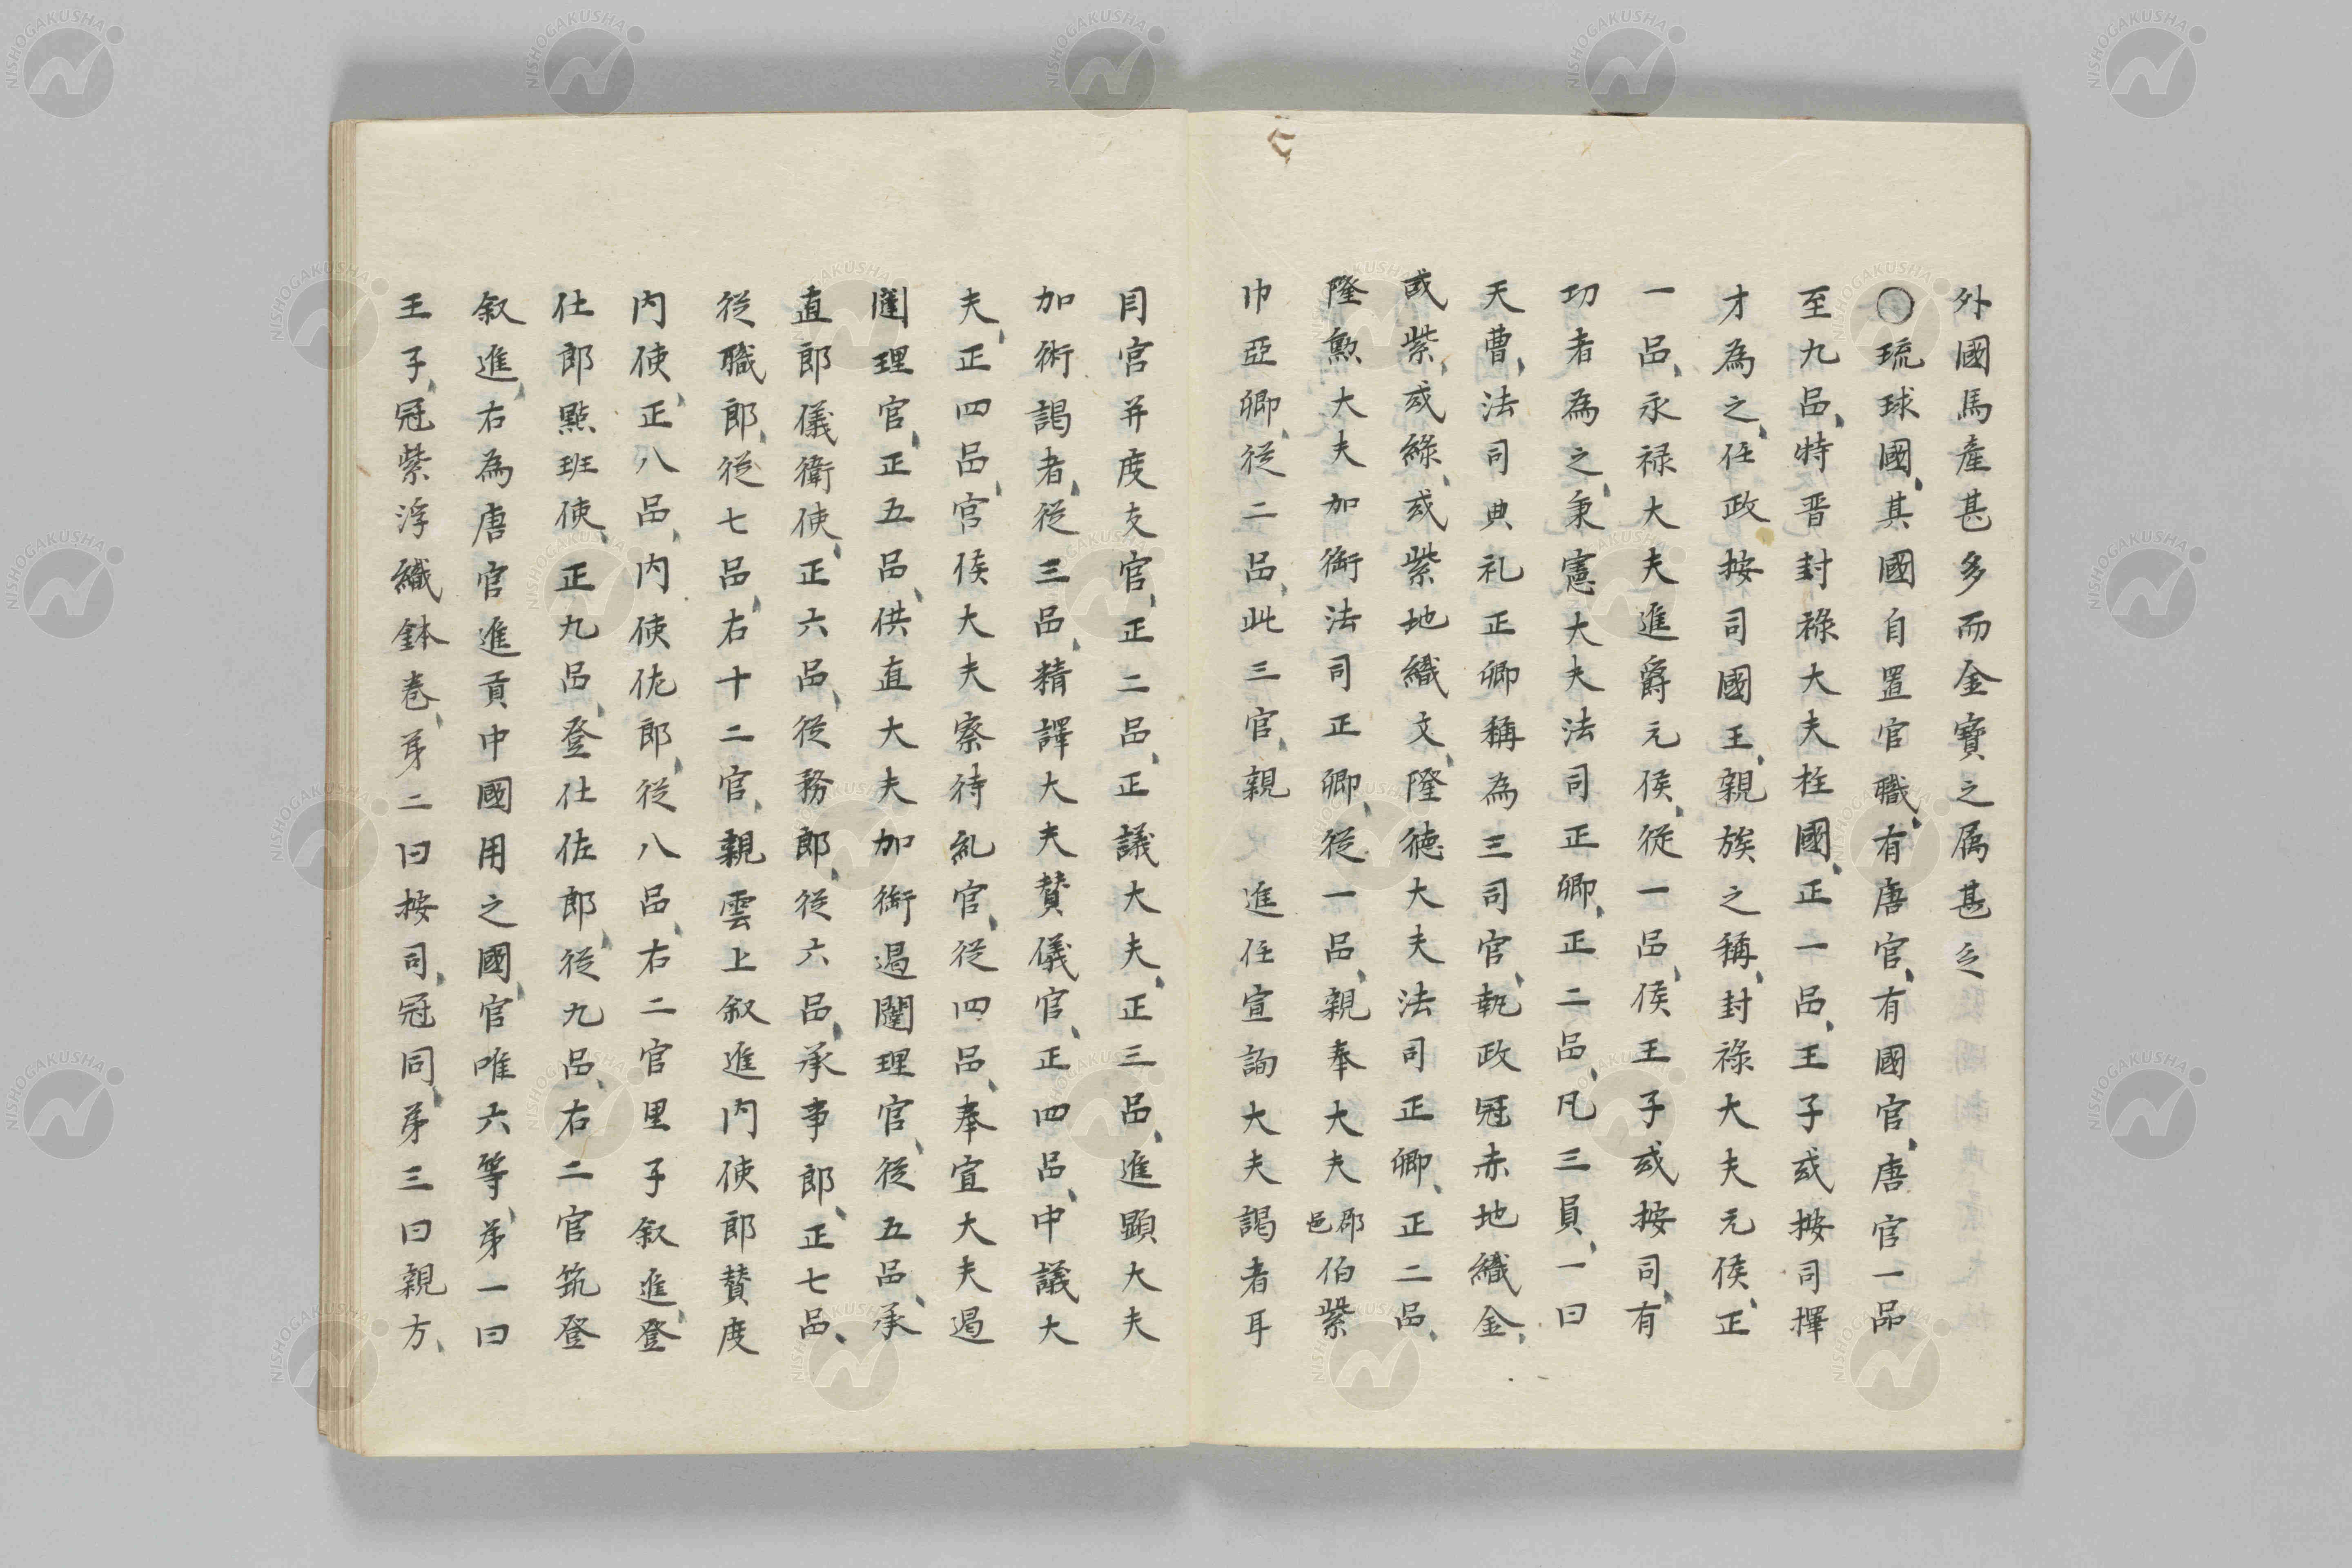 外國馬產甚多而金寶之属甚乏
〇琉球國、其國自置官職、有唐官、有國官、唐官一品
至九品、特晋封祿大夫柱國、正一品、王子或按司擇
才為之、任政按司國王、親族之稱、封祿大夫元侯、正
一品、永禄大夫進爵元侯、從一品、侯王子或按司、有
功者為之、秉憲大夫法司正卿、正二品、凡三員、一曰
天曹、法司典礼正卿稱為三司官、執政冠赤地織金、
或紫、或綠、或紫地織文、隆德大夫法司正卿、正二品、
隆勲大夫加銜法司正卿、從一品、親奉大夫郡邑伯紫
巾亞卿、從二品、此三官、親 進任宣詢大夫謁者耳
目官并度支官、正二品、正議大夫、正三品、進顕大夫
加術謁者、從三品、精譯大夫賛儀官、正四品、中議大
夫、正四品、官侯大夫察待糺官、從四品、奉宣大夫遏
闥理官、正五品、供直大夫加銜遏闥理官、從五品、承
直郎儀衛使、正六品、從務郎、從六品、承事郎、正七品、
從職郎、從七品、右十二官、親雲上叙進内使郎賛度
内使、正八品、内使佐郎、從八品、右二官里子叙進、登
仕郎點班使、正九品、登仕佐郎、從九品、右二官筑登
叙進、右為唐官進貢中國用之國、官唯六等、第一曰
王子、冠紫浮織鉢巻、第二曰按司、冠同、第三曰親方、
NISHOGAKUSHA